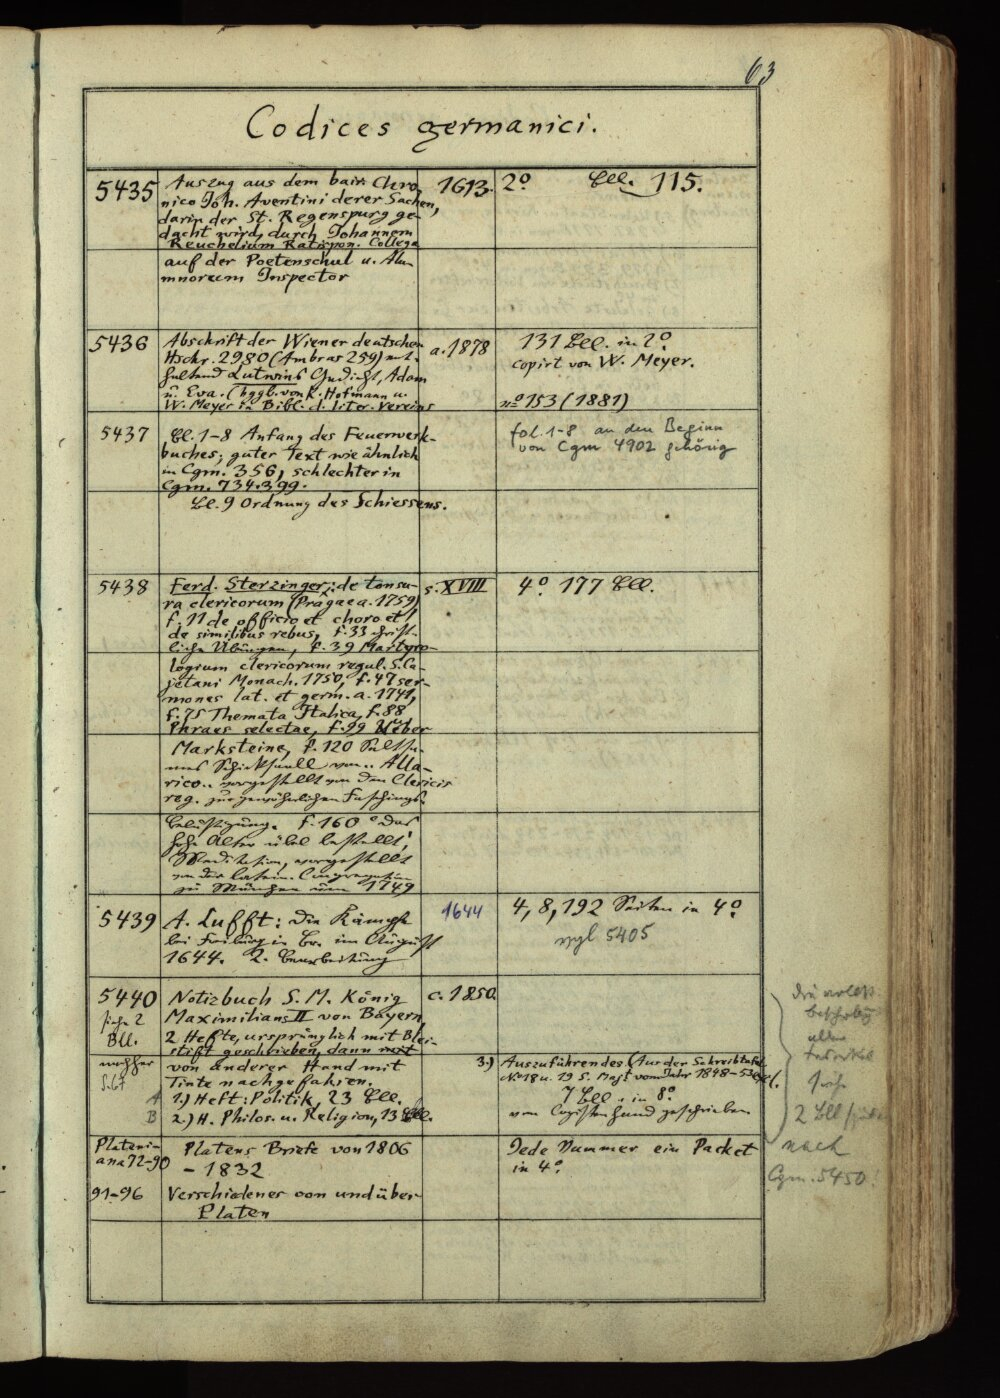 63
Codices germanici.
5435 Auszug aus dem bair. Chro- 1613. 2º Bll. 115.
nico Joh. Aventini derer Sachen,
darin der St. Regenspurg ge-
dacht wird, durch Johannem
Reuchelium Ratispon. Collega
auf der Poetenschul u. Alu-
mnorum Inspector
5436 Abschrift der Wiener deutschen a. 1878 131 Bll. in 2º.
Hschr. 2980 (Ambras 259) ent- copirt von W. Meyer.
haltend Lutwins Gedicht, Adam
u. Eva. (hggb. von K. Hofmann u.
W. Meyer in Bibl. d. liter. Vereins nº 153 (1881)
5437 Bl. 1-8 Anfang des Feuerwerk- fol. 1-8 an den Beginn
buches; guter Text wie ähnlich von Cgm 4902 gehörig
in Cgm. 356, schlechter in
Cgm. 734. 399.
Bl. 9 Ordnung des Schiessens.
5438 Ferd. Sterzinger: de tonsu- s. XVIII 4º 177 Bll.
ra clericorum (Pragae a. 1759)
f. 11 de officio et choro et
de similibus rebus, f. 33 christ-
liche Übungen, f. 39 Martyro-
logium clericorum regul. S. Ca-
jetani Monach. 1750, f. 47 ser-
mones lat. et germ. a. 1741,
f. 75 Themata Italica, f. 88
Phraes selectae, f. 99 Ueber
Marksteine, f. 120
Schicksaall von .. Alla-
rico .. vorgestellt von den Clericis
reg. zur gewöhnlichen Faschings-
belustigung. f. 160 "das
hohe Alter übel bestellt",
Meditation, vorgestellt
von der latein. Congregation
zu München um 1749
5439 A. Lufft: Die Kämpfe 1644 4, 8, 192 Seiten in 4º.
bei Freiburg i. Br. im August vgl 5405
1644. 2. Bearbeitung
5440 Notizbuch S. M. König c. 1850.
siehe 2 Maximilians II von Bayern
Bll. 2 Hefte, ursprünglich mit Blei-
stift geschrieben, dann mit
nachher von anderer Hand mit 3.) Auszuführendes (Aus der Schreibtafel
Tinte nachgefahren. Nº 18 u. 19 S. Majt. vom Jahr 1848-53
A 1.) Heft: Politik, 23 Bll. 7 Bll. in 8º.
B 2.) H. Philos. u. Religion, 13 Bll. von Copistenhand geschrieben
Plateni- Platens Briefe von 1806 Jede Nummer ein Packet
ana 72-90 - 1832 in 4º.
91-96 Verschiedenes von und über
Platen
siehe
2 Bll
nach
Cgm. 5450!